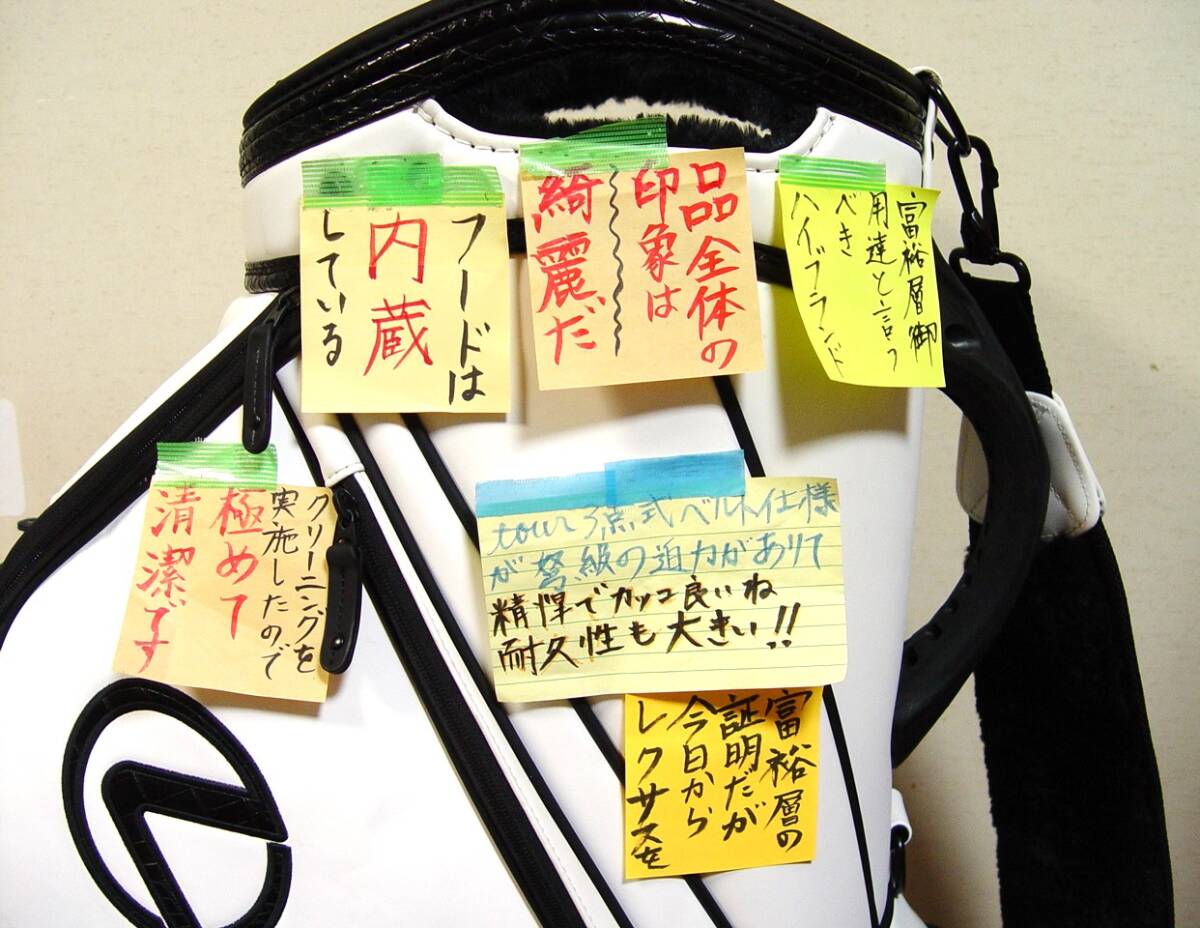 フードは
内蔵
している
品全体の
印象は
綺麗だ
富裕層御
用達と言う
べき
ハイブランド
クリーニングを
実施したので
極めて
清潔です
tour 3点式ベルト仕様
が弩級の迫力がありて
精悍でカッコ良いね
耐久性も大きい!!
富裕層の
証明だが
今日から
レクサスを